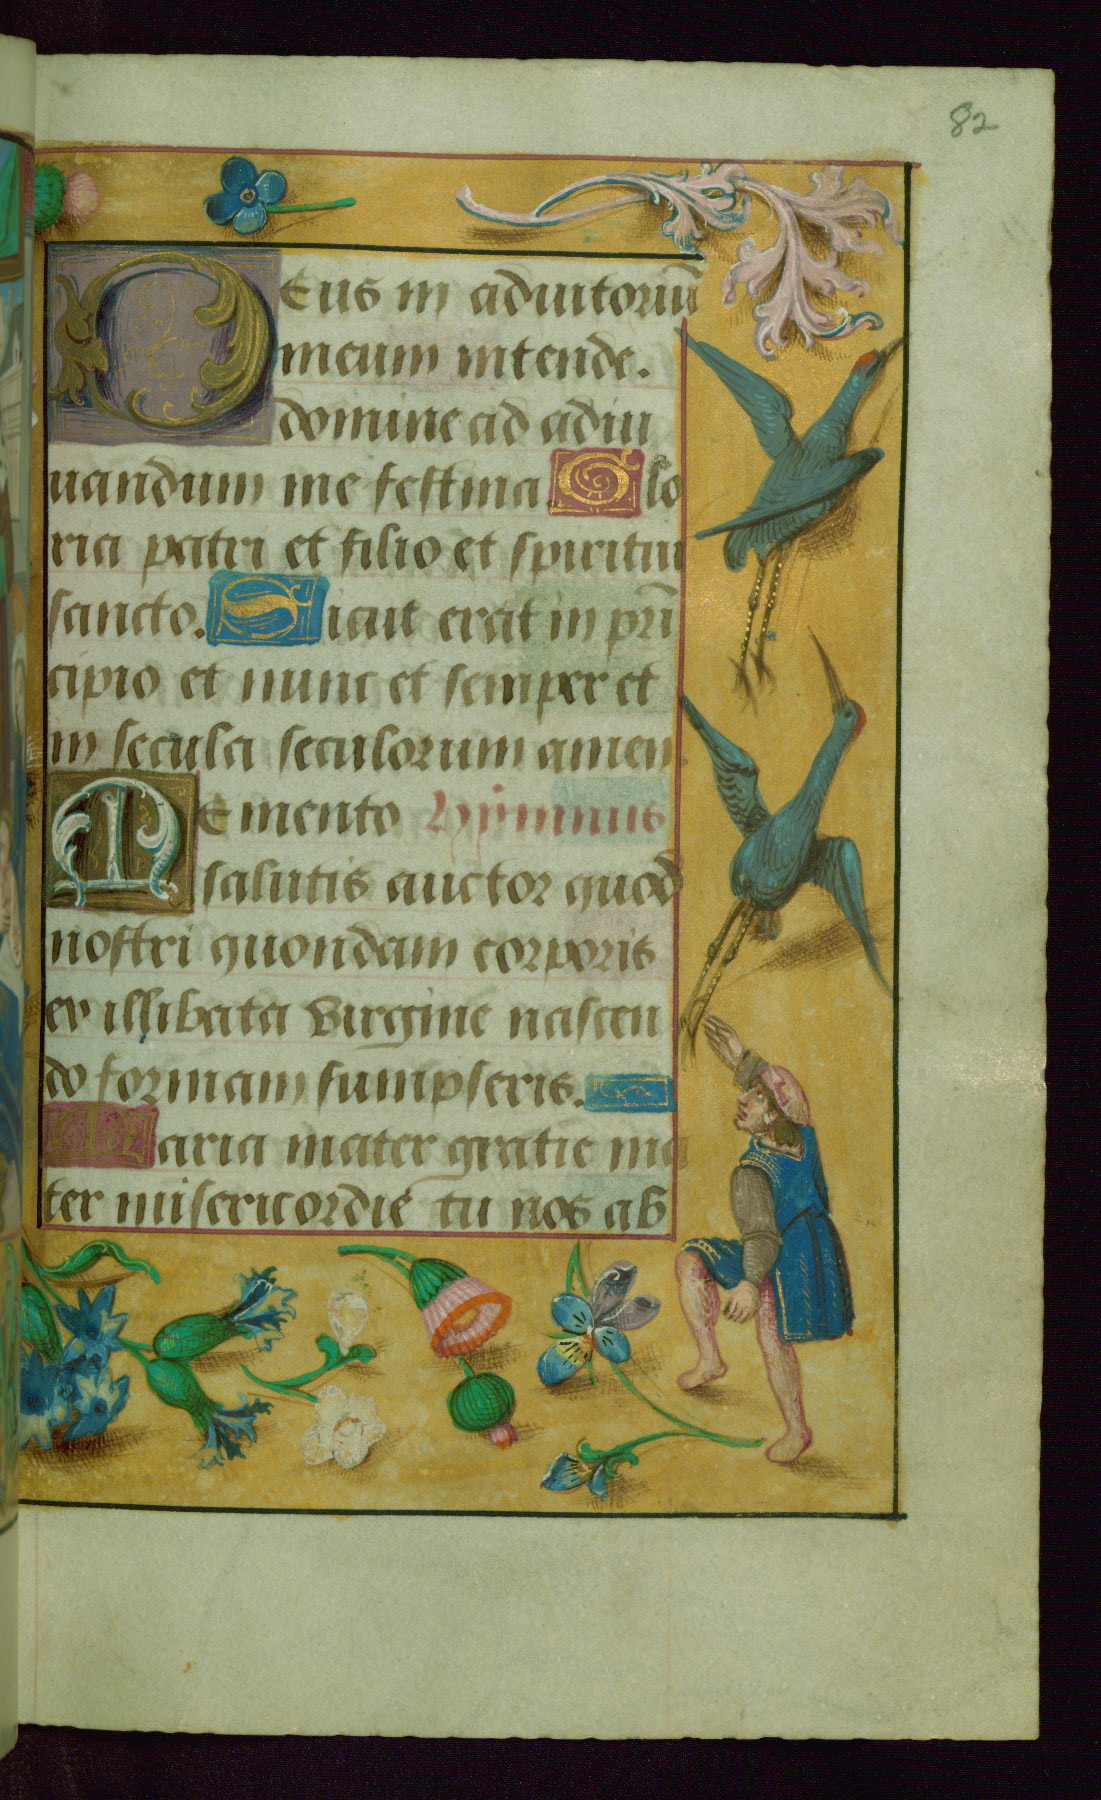 82
Deus in adiutoriū
meum intende.
domine ad adiu
uandum me festina. Glo
ria patri et filio et spiritui
sancto. Sicut erat in prī
cipio et nunc et semper et
in secula seculorum amen.
Memento hÿmnus
salutis auctor quod
nostri quondam corporis
ex illibata virgine nascen
do formam sumpseris.
Maria mater gratie ma
ter misericordie tu nos ab